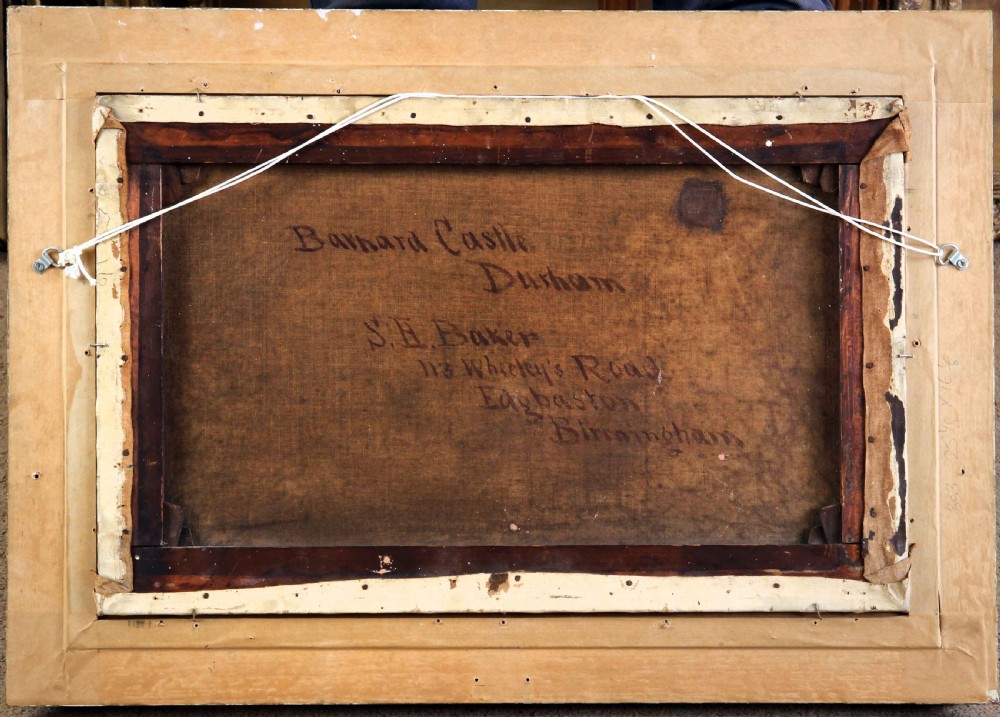 Barnard Castle.
Durham
S. H. Baker
113 Wheeley's Road
Edgbaston
Birmingham